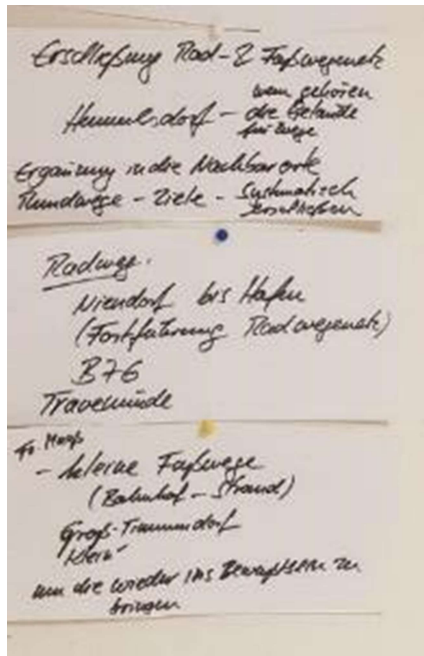 Erschließung Rad- & Fußwegenetz
wem gehören
Hemmelsdorf - die Gelände
für Wege
Ergänzung in die Nachbarorte
Rundwege - Ziele - Systematisch
erschließen
Radwege.
Niendorf bis Hafen
(Fortführung Radwegenetz)
B76
Travemünde
- kleine Fußwege
(Bahnhof - Strand)
Groß-Timmendorf
Klein"
um die wieder ins Bewußtsein zu
bringen